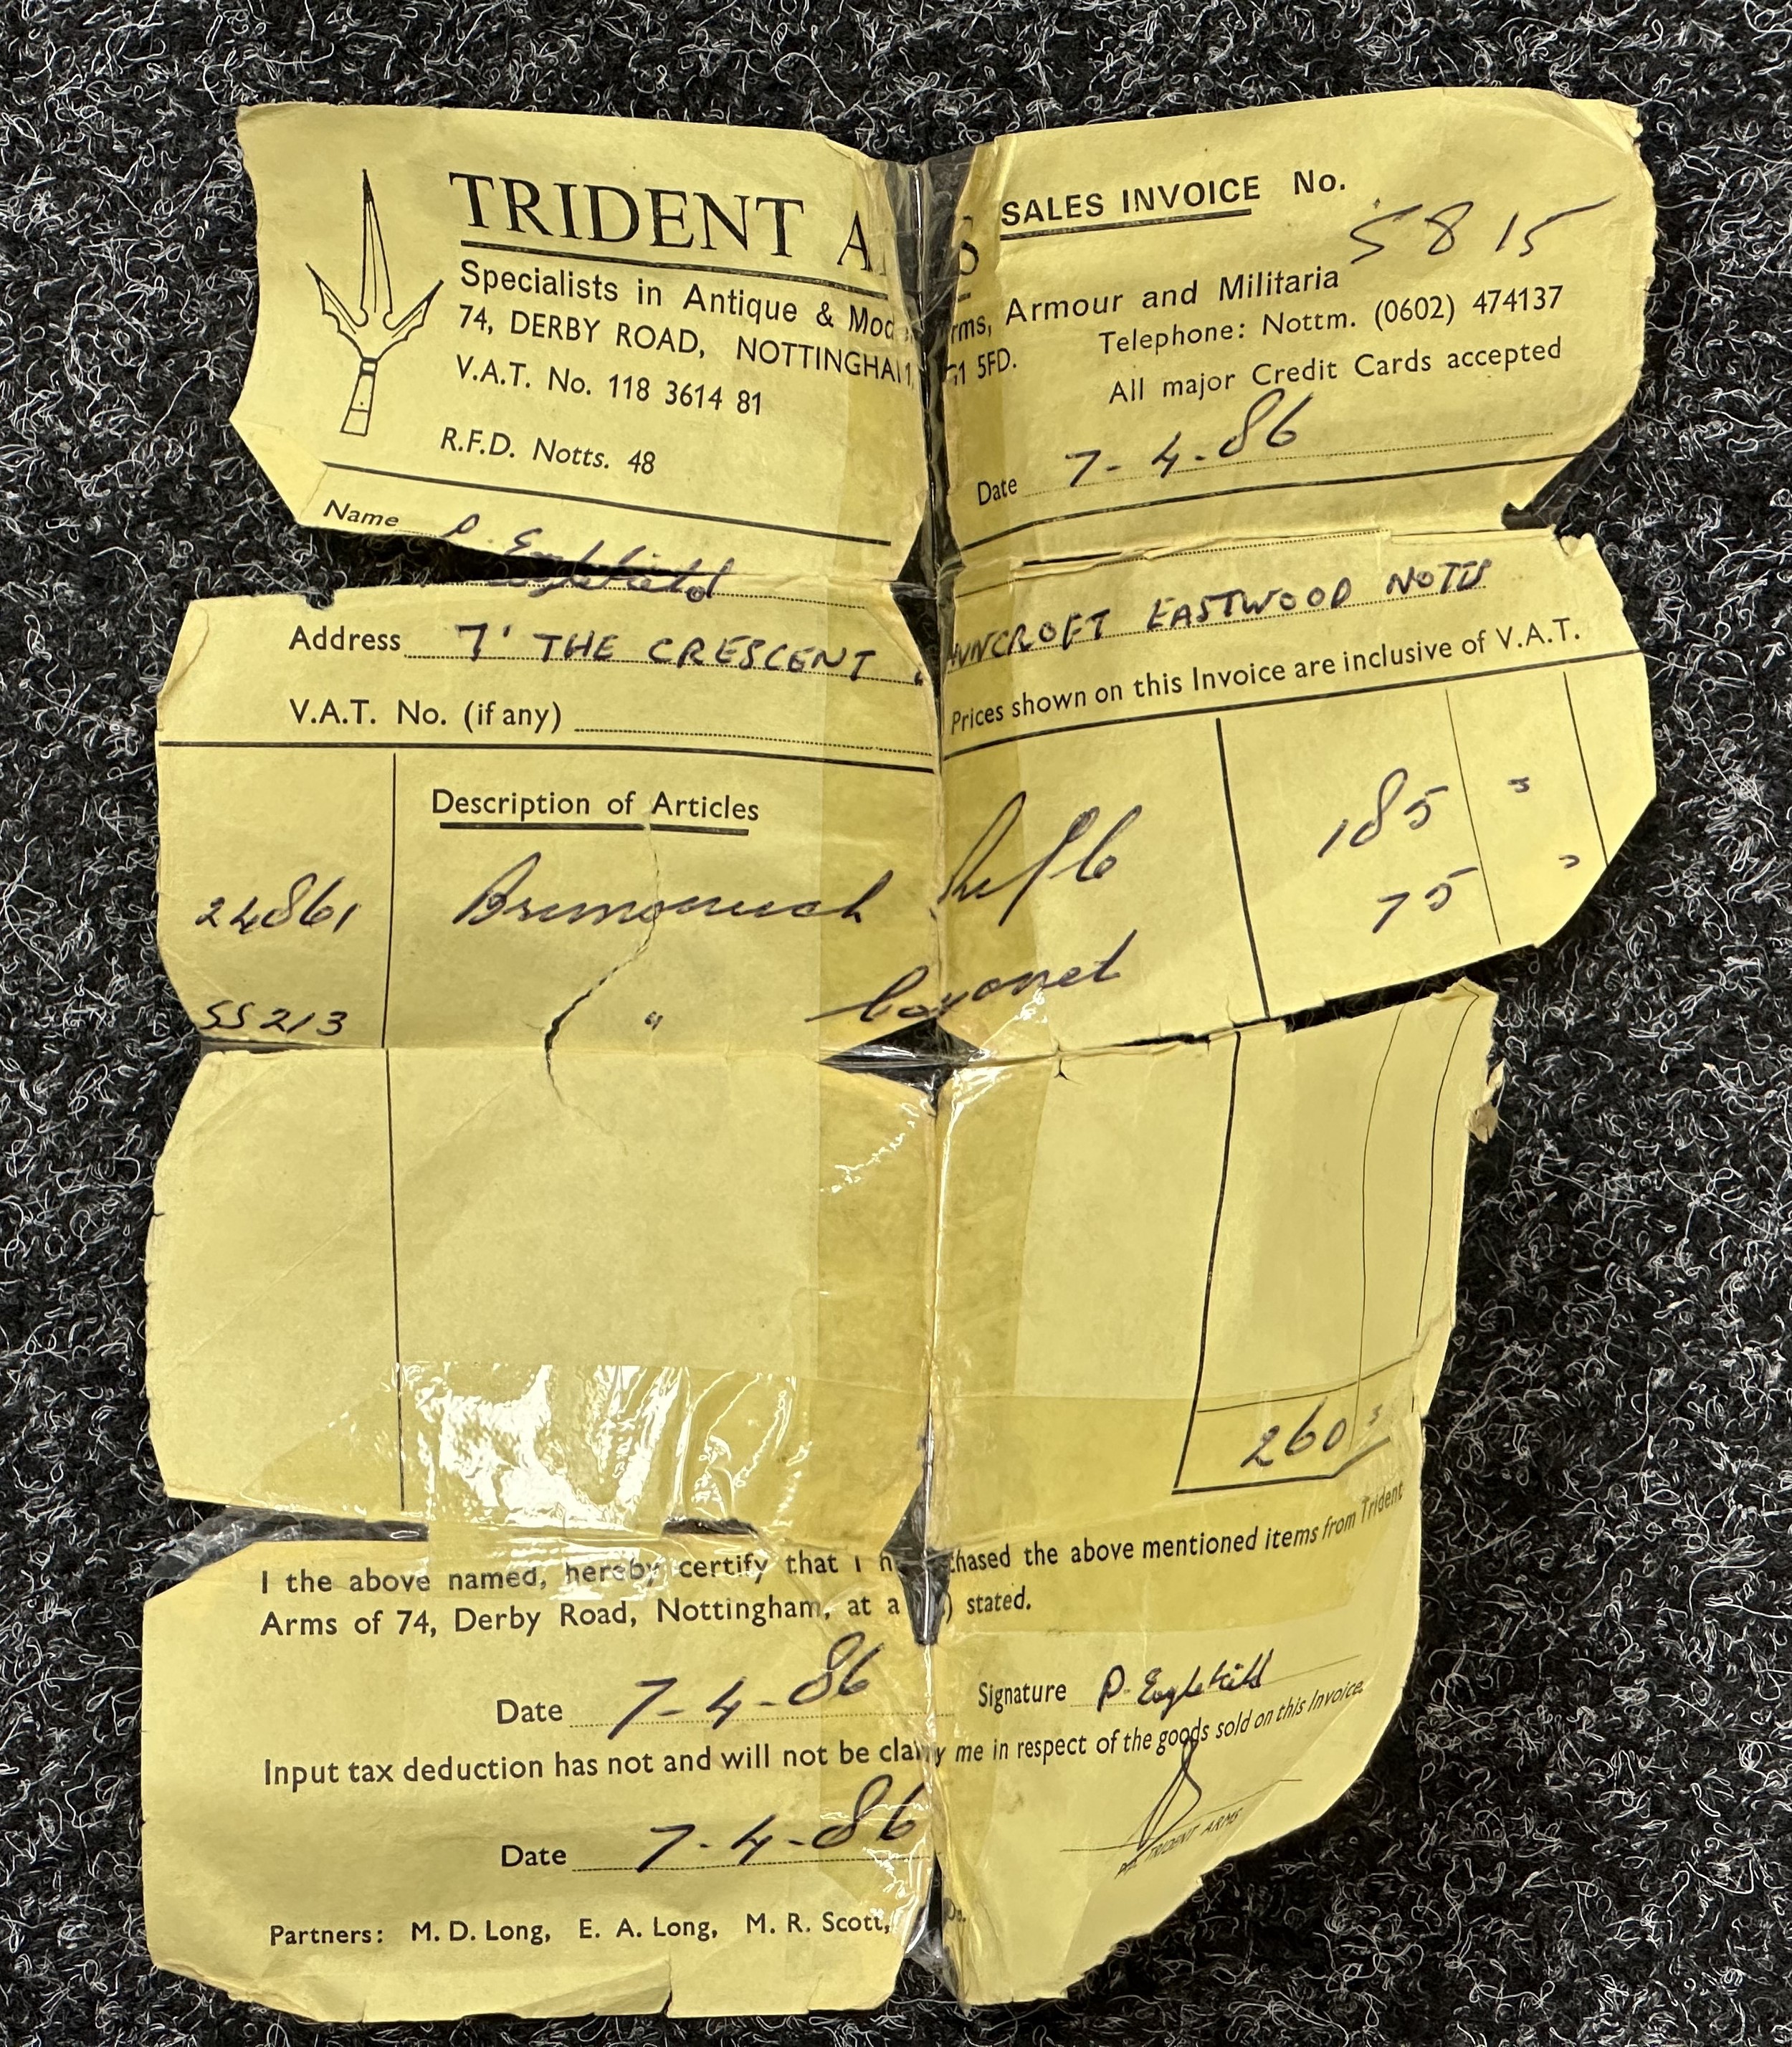 TRIDENT A S
SALES INVOICE No.
5815
Specialists in Antique & Mod rms, Armour and Militaria
74, DERBY ROAD, NOTTINGHAM G1 5FD.
Telephone: Nottm. (0602) 474137
V.A.T. No. 118 3614 81
All major Credit Cards accepted
R.F.D. Notts. 48
Date 7-4-86
Name P. Eaglefield
Address 7' THE CRESCENT, NNCROFT EASTWOOD NOTTS
V.A.T. No. (if any)
Prices shown on this Invoice are inclusive of V.A.T.
Description of Articles
24861 Rifle 185
SS213 " bayonet 75
260
I the above named, hereby certify that I h chased the above mentioned items from Trident
Arms of 74, Derby Road, Nottingham, at a ) stated.
Date 7-4-86 Signature P. Eaglefield
Input tax deduction has not and will not be claim y me in respect of the goods sold on this Invoice.
Date 7-4-86
TRIDENT ARMS
Partners: M. D. Long, E. A. Long, M. R. Scott,